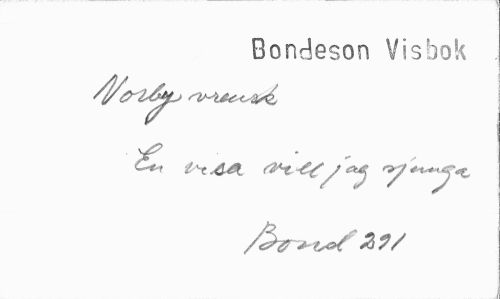 Bondeson Visbok
Norby vrensk
En visa vill jag sjunga
Bond 291